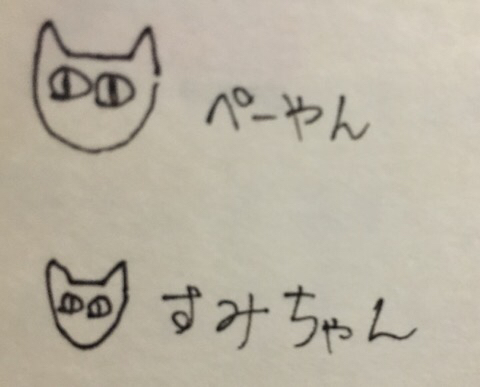 ぺーやん
すみちゃん